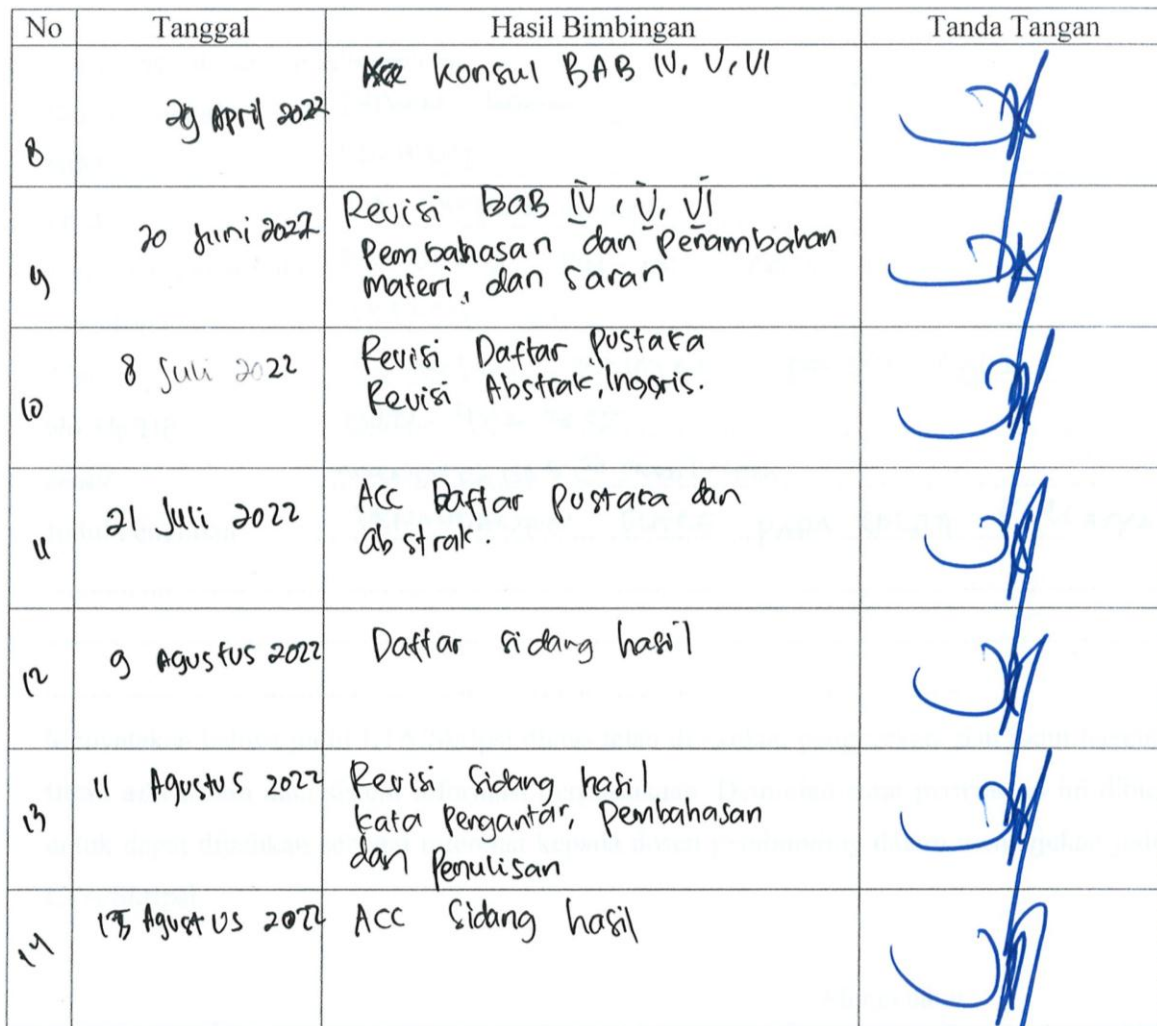 No Tanggal Hasil Bimbingan Tanda Tangan
8 29 April 2022 Konsul BAB IV, V, VI
9 20 Juni 2022 Revisi BaB IV, V, VI
Pembahasan dan Penambahan
materi, dan saran
10 8 Juli 2022 Revisi Daftar Pustaka
Revisi Abstrak, Inggris.
11 21 Juli 2022 Acc Daftar Pustaka dan
abstrak.
12 9 Agustus 2022 Daftar sidang hasil
13 11 Agustus 2022 Revisi Sidang hasil
kata Pengantar, Pembahasan
dan Penulisan
14 Agustus 2022 ACC Sidang hasil